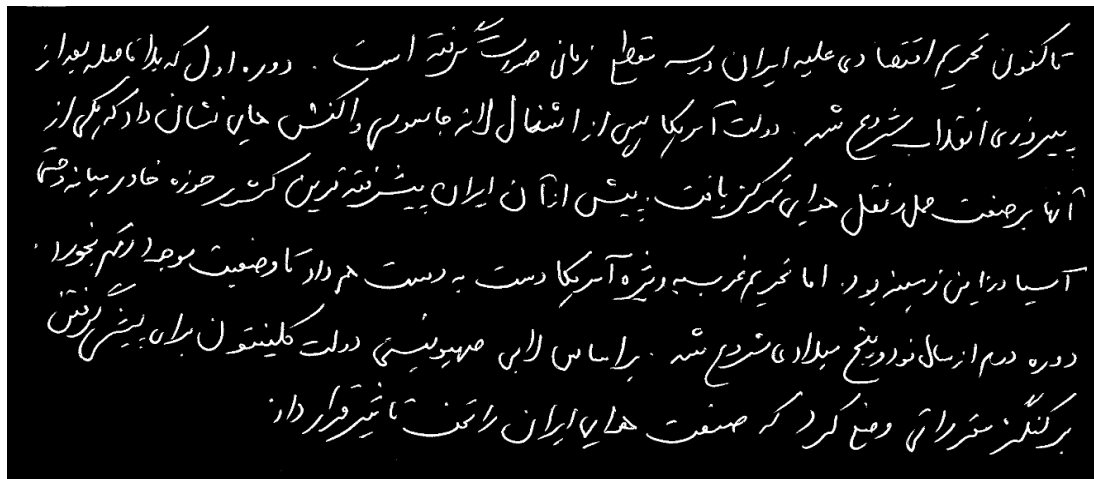 تاکنون تحریم اقتصادی علیه ایران در سه مقطع زمانی صورت گرفته است . دوره اول که بلافاصله بعد از
پیروزی انقلاب شروع شد . دولت آمریکا پس از اشغال لانه جاسوسی واکنش هایی نشان داد که یکی از
آنها بر صنعت حمل و نقل هوایی تمرکز یافت . پیش از آن ایران پیشرفته ترین کشور حوزه خاورمیانه و حتی
آسیا در این زمینه بود . اما تحریم غرب به ویژه آمریکا دست به دست هم داد تا وضعیت موجود رقم بخورد .
دوره دوم از سال نود و پنج میلادی شروع شد . براساس لابی صهیونیستی دولت کلینتون برای پیشی گرفتن
بر کنگره مقرراتی وضع کرد که صنعت هایی ایران را تحت تاثیر قرار داد .